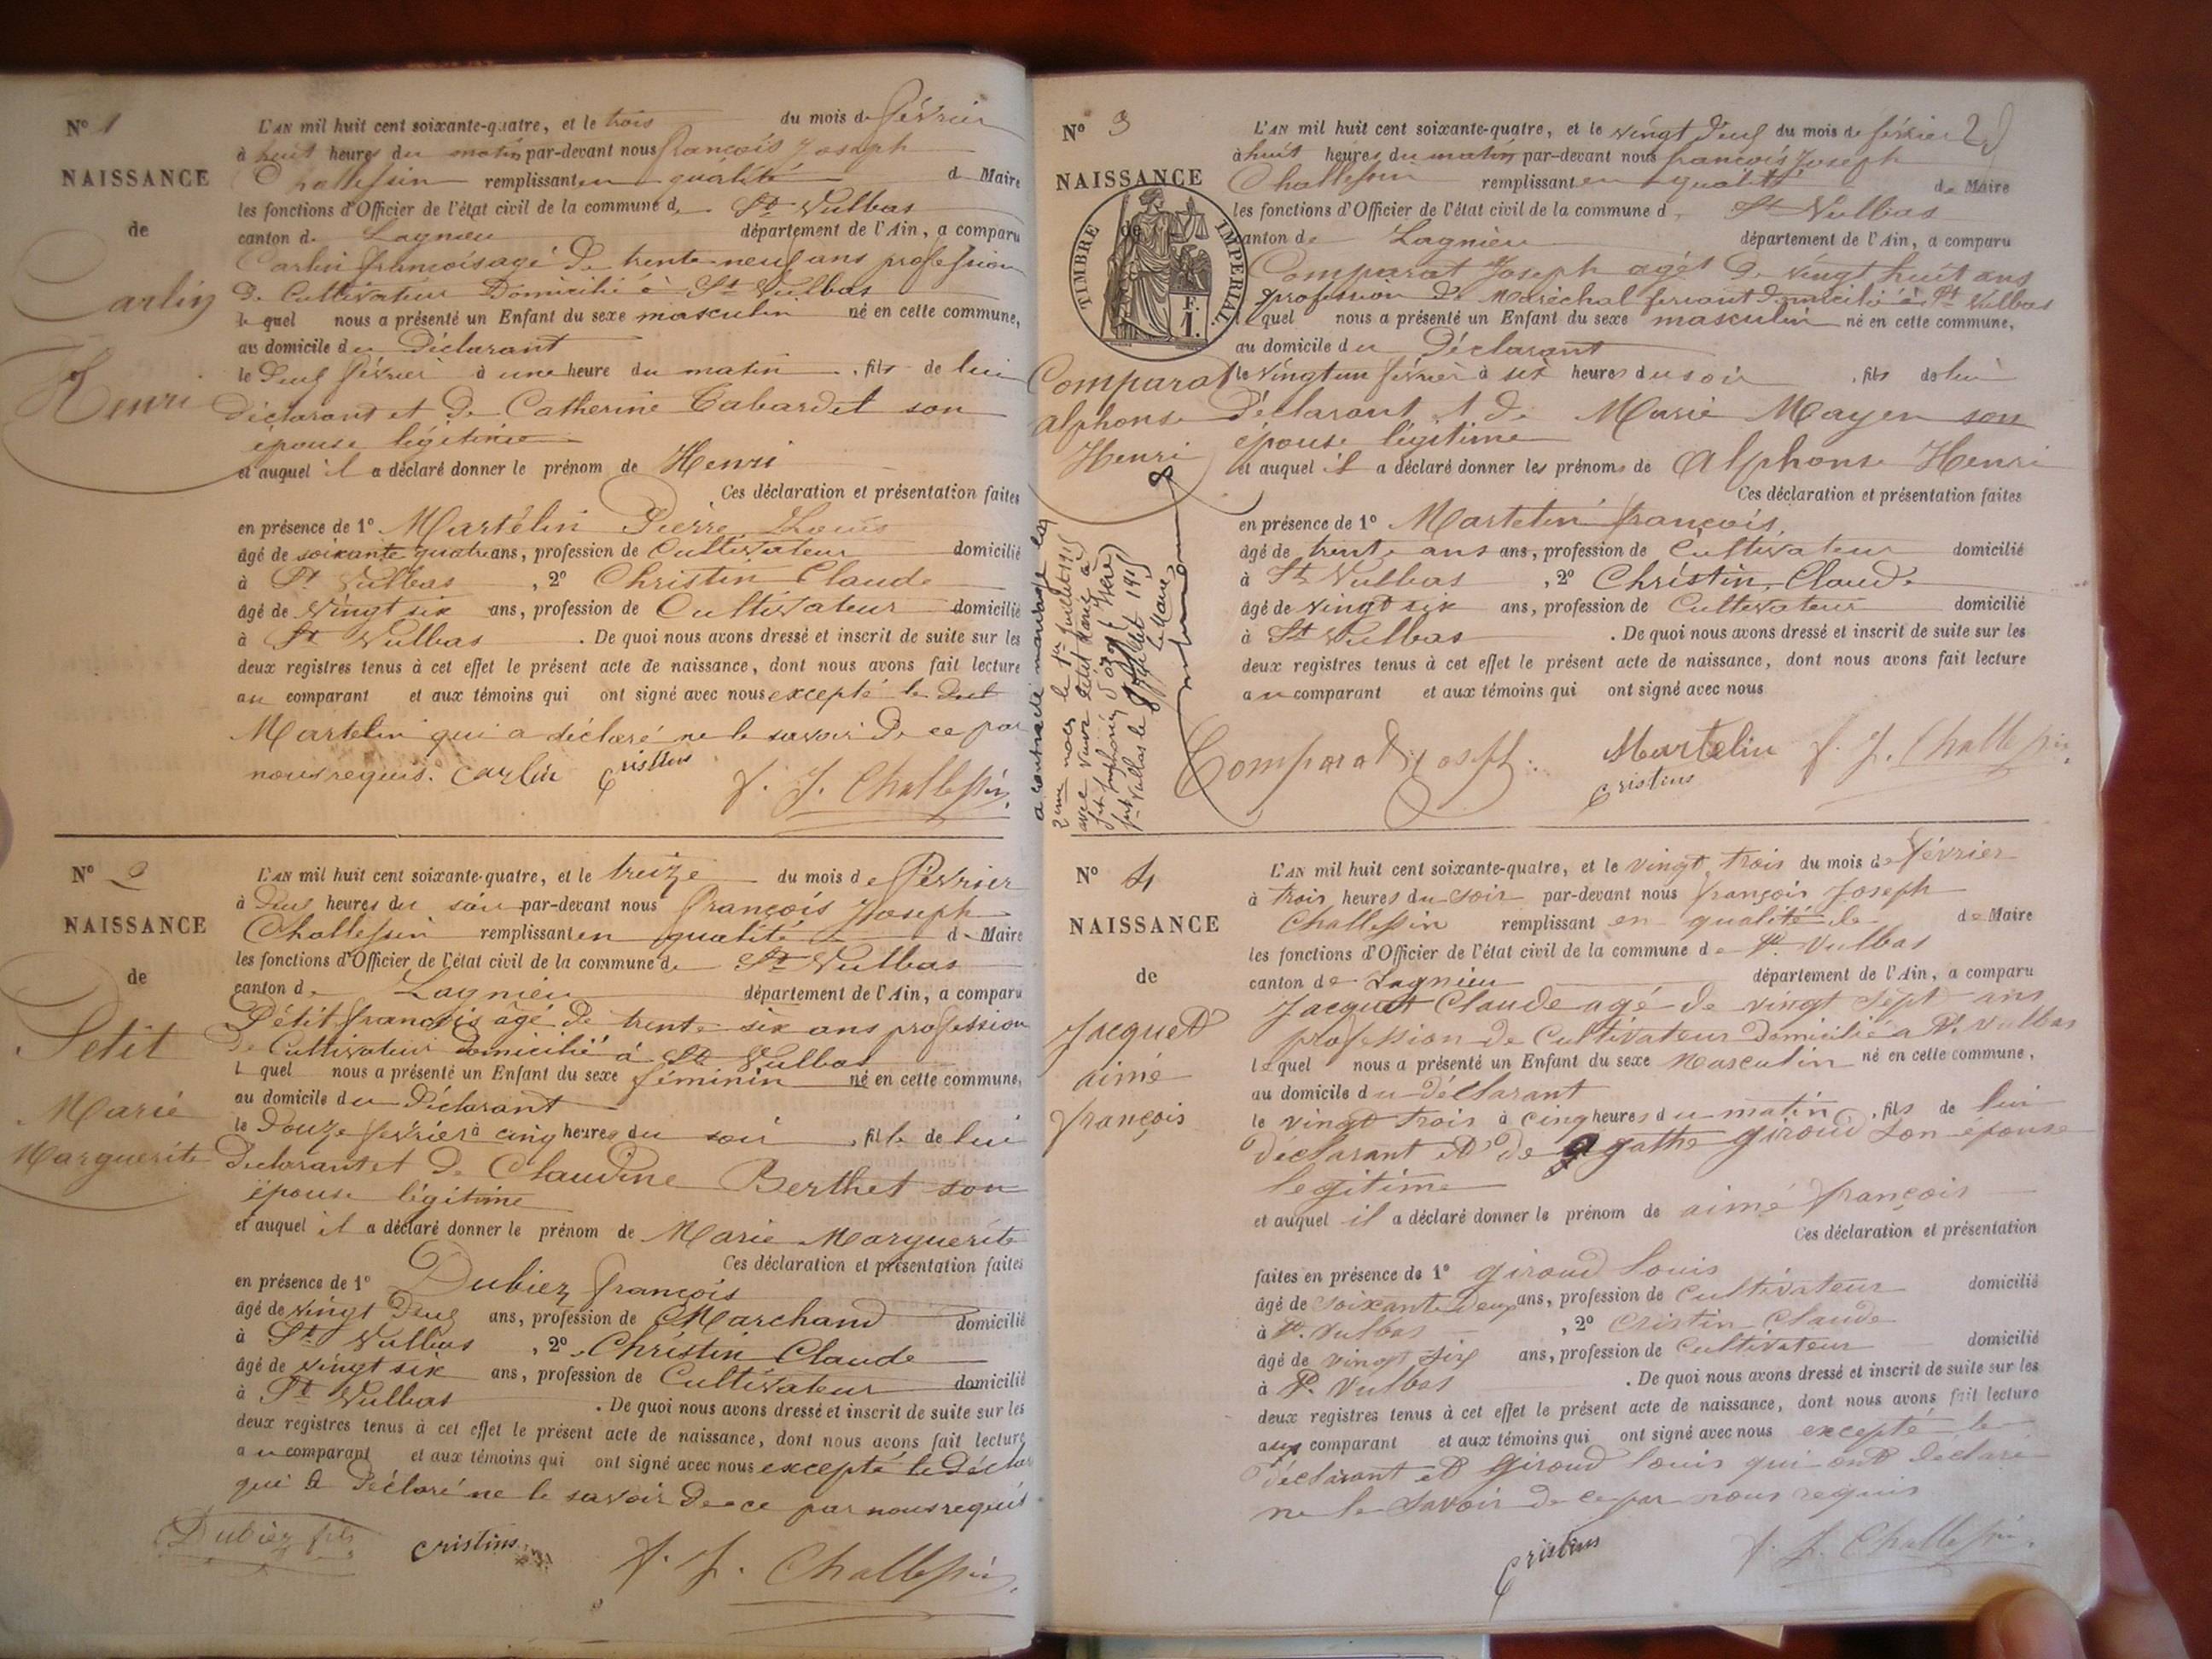 N° 1
NAISSANCE
de
Carlin
Henri
L'AN mil huit cent soixante-quatre, et le trois du mois de février
à huit heures du matin par-devant nous françois Joseph
Challessin remplissant en qualité de Maire
les fonctions d'Officier de l'état civil de la commune de St Vulbas
canton de Lagnieu département de l'Ain, a comparu
Carlin françois agé de trente neuf ans profession
de Cultivateur Domicilié à St Vulbas
le quel nous a présenté un Enfant du sexe masculin né en cette commune,
au domicile du Déclarant
le deux février à une heure du matin, fils de lui
déclarant et de Catherine Cabardet son
épouse légitime
et auquel il a déclaré donner le prénom de Henri
Ces déclaration et présentation faites
en présence de 1° Martelin Pierre Louis
âgé de soixante quatre ans, profession de Cultivateur domicilié
à St Vulbas, 2° Christin Claude
âgé de vingt six ans, profession de Cultivateur domicilié
à St Vulbas. De quoi nous avons dressé et inscrit de suite sur les
deux registres tenus à cet effet le présent acte de naissance, dont nous avons fait lecture
au comparant et aux témoins qui ont signé avec nous excepté le dit
Martelin qui a déclaré ne le savoir de ce par
nous requis. Carlin Cristins F. J. Challessin
N° 2
NAISSANCE
de
Petit
Marie
Marguerite
L'AN mil huit cent soixante-quatre, et le treize du mois de février
à deux heures du soir par-devant nous françois Joseph
Challessin remplissant en qualité de Maire
les fonctions d'Officier de l'état civil de la commune de St Vulbas
canton de Lagnieu département de l'Ain, a comparu
Pétit françois âgé de trente six ans profession
de Cultivateur domicilié à St Vulbas
l quel nous a présenté un Enfant du sexe féminin né en cette commune,
au domicile du Déclarant
le Douze février à cinq heures du soir, fille de lui
Déclarant et de Claudine Berthet son
épouse légitime
et auquel il a déclaré donner le prénom de Marie Marguerite
Ces déclaration et présentation faites
en présence de 1° Dubiez françois
âgé de vingt deux ans, profession de Marchand domicilié
à St Vulbas, 2° Christin Claude
âgé de vingt six ans, profession de Cultivateur domicilié
à St Vulbas. De quoi nous avons dressé et inscrit de suite sur les
deux registres tenus à cet effet le présent acte de naissance, dont nous avons fait lecture
au comparant et aux témoins qui ont signé avec nous excepté le déclar
qui a Déclaré ne le savoir de ce par nous requis
Dubiez fils Cristins F. J. Challessin
N° 3
NAISSANCE
de
TIMBRE IMPERIAL
F.
1.
Comparat
alphonse
Henri
a contracté mariage en
2eme noces le 1er juillet 1915
avec veuve Petit Marie à
St Vulbas le juillet 1915
Le Maire
L'AN mil huit cent soixante-quatre, et le vingt deux du mois de février
à huit heures du matin par-devant nous françois Joseph
Challessin remplissant en qualité de Maire
les fonctions d'Officier de l'état civil de la commune d St Vulbas
canton de Lagnieu département de l'Ain, a comparu
Comparat Joseph agét de vingt huit ans
profession de Maréchal ferrant domicilié à St Vulbas
le quel nous a présenté un Enfant du sexe masculin né en cette commune,
au domicile du Déclarant
le vingt un février à six heures du soir, fils de lui
Déclarant & de Marie Mayen son
épouse légitime
et auquel il a déclaré donner les prénoms de Alphonse Henri
Ces déclaration et présentation faites
en présence de 1° Martelin françois
âgé de trente ans ans, profession de Cultivateur domicilié
à St Vulbas, 2° Christin Claude
âgé de vingt six ans, profession de Cultivateur domicilié
à St Vulbas. De quoi nous avons dressé et inscrit de suite sur les
deux registres tenus à cet effet le présent acte de naissance, dont nous avons fait lecture
au comparant et aux témoins qui ont signé avec nous
Comparat Joseph Martelin F. J. Challessin
Cristins
N° 4
NAISSANCE
de
Jacquet
aimé
françois
L'AN mil huit cent soixante-quatre, et le vingt trois du mois de février
à trois heures du soir par-devant nous françois Joseph
Challessin remplissant en qualité de de Maire
les fonctions d'Officier de l'état civil de la commune de St. Vulbas
canton de Lagnieu département de l'Ain, a comparu
Jacquet Claude agé de vingt sept ans
profession de Cultivateur domicilié à St. Vulbas
lequel nous a présenté un Enfant du sexe Masculin né en cette commune,
au domicile du déclarant
le vingt trois à cinq heures du matin, fils de lui
déclarant et de agathe giroud son épouse
legitime
et auquel il a déclaré donner le prénom de aimé françois
Ces déclaration et présentation
faites en présence de 1° giroud louis
âgé de soixante deux ans, profession de cultivateur domicilié
à St. Vulbas, 2° Cristin Claude
âgé de vingt six ans, profession de cultivateur domicilié
à St. Vulbas. De quoi nous avons dressé et inscrit de suite sur les
deux registres tenus à cet effet le présent acte de naissance, dont nous avons fait lecture
aux comparant et aux témoins qui ont signé avec nous excepté le
déclarant et giroud louis qui ont déclaré
ne le savoir de ce par nous requis
Cristins F. J. Challessin